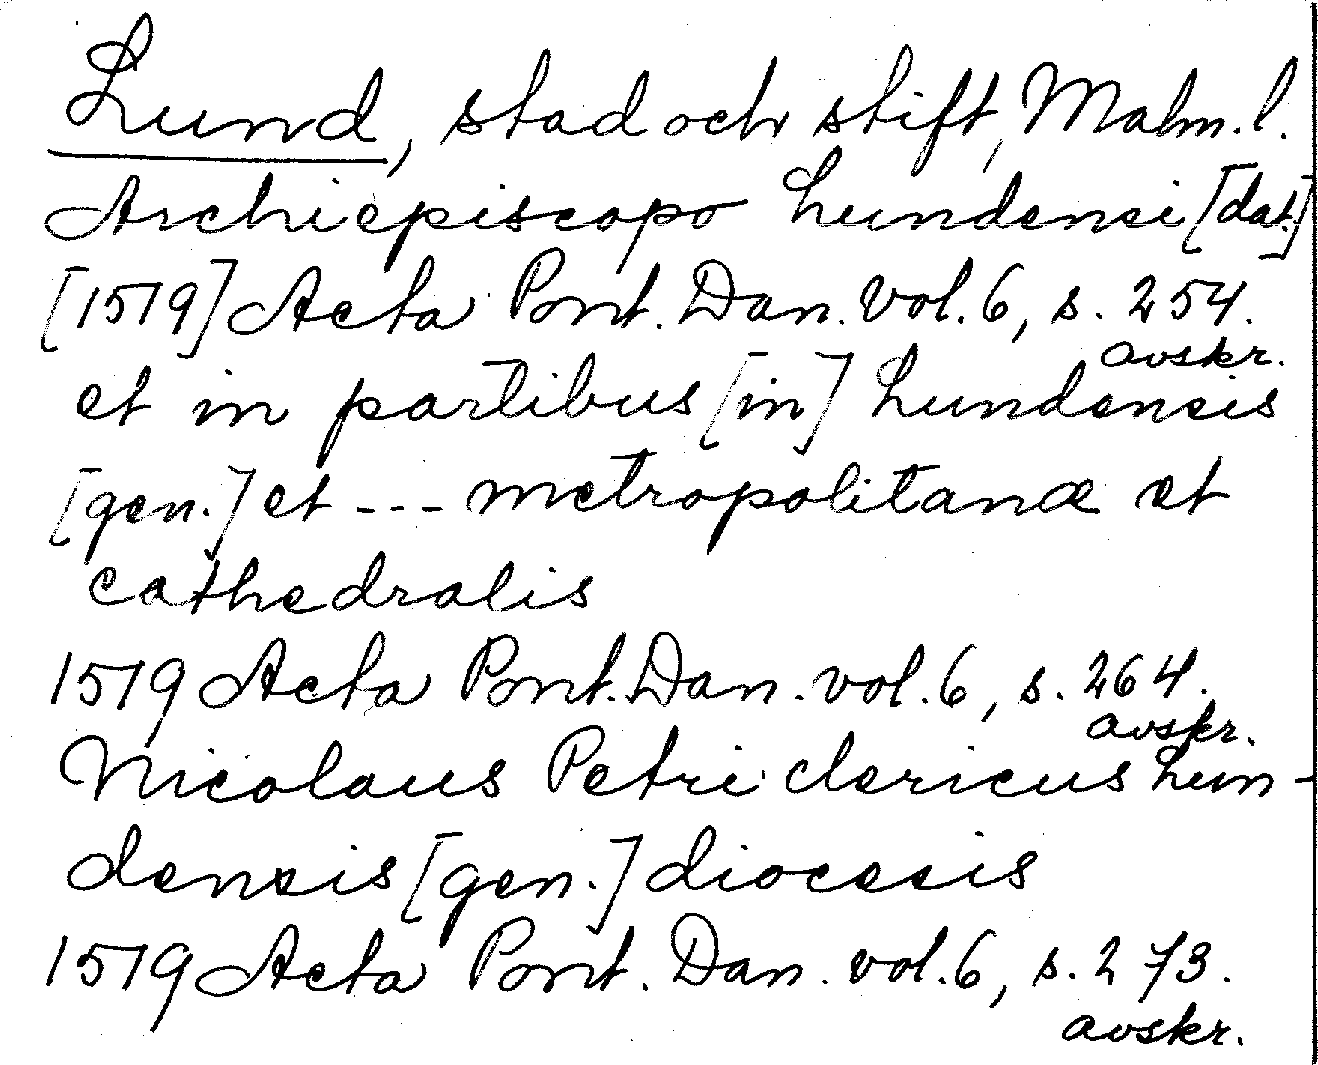 Lund, stad och stift, Malm. l.
Archiepiscopo Lundensi [dat.]
[1519] Acta Pont. Dan. vol. 6, s. 254.
avskr.
et in partibus [in] Lundensis
[gen.] et --- metropolitanæ et
cathedralis
1519 Acta Pont. Dan. vol. 6, s. 264.
avskr.
Nicolaus Petri clericus Lun-
densis [gen.] diocesis
1519 Acta Pont. Dan. vol. 6, s. 273.
avskr.